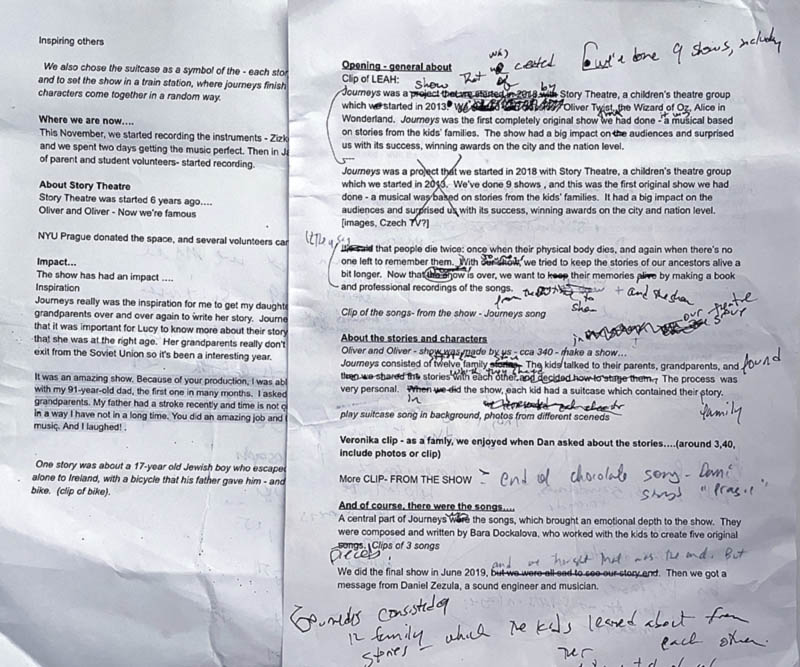 Inspiring others
We also chose the suitcase as a symbol of the - each stor
and to set the show in a train station, where journeys finish
characters come together in a random way.
Where we are now....
This November, we started recording the instruments - Zizk
and we spent two days getting the music perfect. Then in Ja
of parent and student volunteers- started recording.
About Story Theatre
Story Theatre was started 6 years ago....
Oliver and Oliver - Now we're famous
NYU Prague donated the space, and several volunteers car
Impact...
The show has had an impact ....
Inspiration
Journeys really was the inspiration for me to get my daught
grandparents over and over again to write her story. Journe
that it was important for Lucy to know more about their story
that she was at the right age. Her grandparents really don't
exit from the Soviet Union so it's been a interesting year.
It was an amazing show. Because of your production, I was abl
with my 91-year-old dad, the first one in many months. I asked
grandparents. My father had a stroke recently and time is not o
in a way I have not in a long time. You did an amazing job and t
music. And I laughed! .
One story was about a 17-year old Jewish boy who escape
alone to Ireland, with a bicycle that his father gave him - and
bike. (clip of bike).
Opening - general about
Clip of LEAH:
show that we created
we've done 9 shows, including
by
Journeys was a project that we started in 2018 with Story Theatre, a children's theatre group
which we started in 2013. Oliver Twist, the Wizard of Oz, Alice in
Wonderland. Journeys was the first completely original show we had done - it was a musical based
on stories from the kids' families. The show had a big impact on the audiences and surprised
us with its success, winning awards on the city and the nation level.
Journeys was a project that we started in 2018 with Story Theatre, a children's theatre group
which we started in 2013. We've done 9 shows , and this was the first original show we had
done - a musical was based on stories from the kids' families. It had a big impact on the
audiences and surprised us with its success, winning awards on the city and nation level.
[images, Czech TV?]
It is said that people die twice: once when their physical body dies, and again when there's no
one left to remember them. With our show, we tried to keep the stories of our ancestors alive a
bit longer. Now that the show is over, we want to keep their memories alive by making a book
and professional recordings of the songs.
from the
and the show
Clip of the songs- from the show - Journeys song
About the stories and characters
in
our theatre
Oliver and Oliver - show was made by us - cca 340 - make a show...
Journeys consisted of twelve family stories. The kids talked to their parents, grandparents, and found
then we shared the stories with each other and decided how to stage them. The process was
very personal. When we did the show, each kid had a suitcase which contained their story.
In
family
play suitcase song in background, photos from different sceneds
Veronika clip - as a famly, we enjoyed when Dan asked about the stories....(around 3,40,
include photos or clip)
More CLIP- FROM THE SHOW - end of chocolate song - Dani
sings "
And of course, there were the songs....
A central part of Journeys were the songs, which brought an emotional depth to the show. They
was
were composed and written by Bara Dockalova, who worked with the kids to create five original
songs. Clips of 3 songs
pieces.
and we thought that was the end. But
We did the final show in June 2019, but we were all sad to see our story end. Then we got a
message from Daniel Zezula, a sound engineer and musician.
Journeys consisted of
12 family
stories - which the kids learned about from
each other.